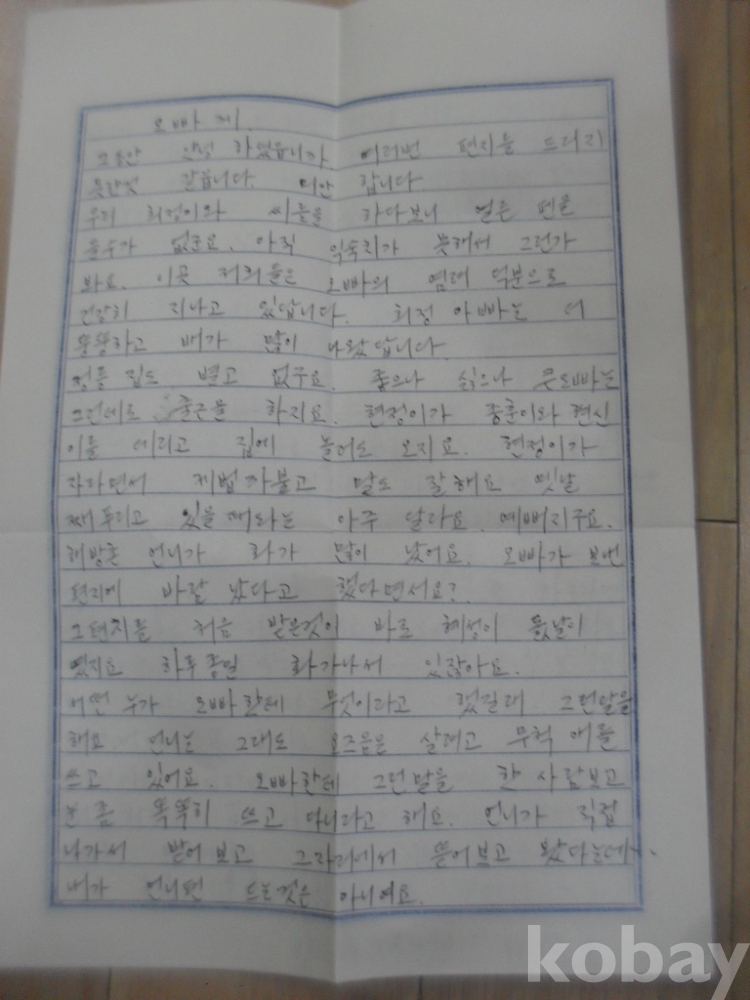 오빠께.
그동안 안녕 하셨읍니까. 여러번 편지를 드리지
못한것 같읍니다. 미안 합니다.
우리 희정이와 씨름을 하다보니 얻은 펜을
들수가 없군요. 아직 익숙치가 못해서 그런가
봐요. 이곳 저희들은 오빠의 염려 덕분으로
건강히 지나고 있답니다. 희정 아빠는 더
뚱뚱하고 배가 많이 나왔답니다.
정릉 집도 별고 없구요. 좋으나 싫으나 큰오빠는
그런데로 출근을 하지요. 현정이가 종훈이와 현신
이를 데리고 집에 놀러도 오지요. 현정이가
자라면서 제법 까불고 말도 잘해요 옛날
째푸리고 있을때와는 아주 달라요. 예뻐지구요.
해방촌 언니가 화가 많이 났어요. 오빠가 보낸
편지에 바람 났다고 했다면서요?
그편지를 처음 받은것이 바로 혜성이 돐날이
였지요 하루종일 화가나서 있잖아요.
어떤 누가 오빠한테 무엇이라고 했길래 그런말을
해요. 언니는 그래도 요즈음은 살려고 무척 애를
쓰고 있어요. 오빠한테 그런말을 한 사람보고
눈 좀 똑똑히 쓰고 다니라고 해요. 언니가 직접
나가서 받어보고 그자리에서 뜯어보고 왔다는데..
내가 언니편 드는것은 아니예요.
kobay